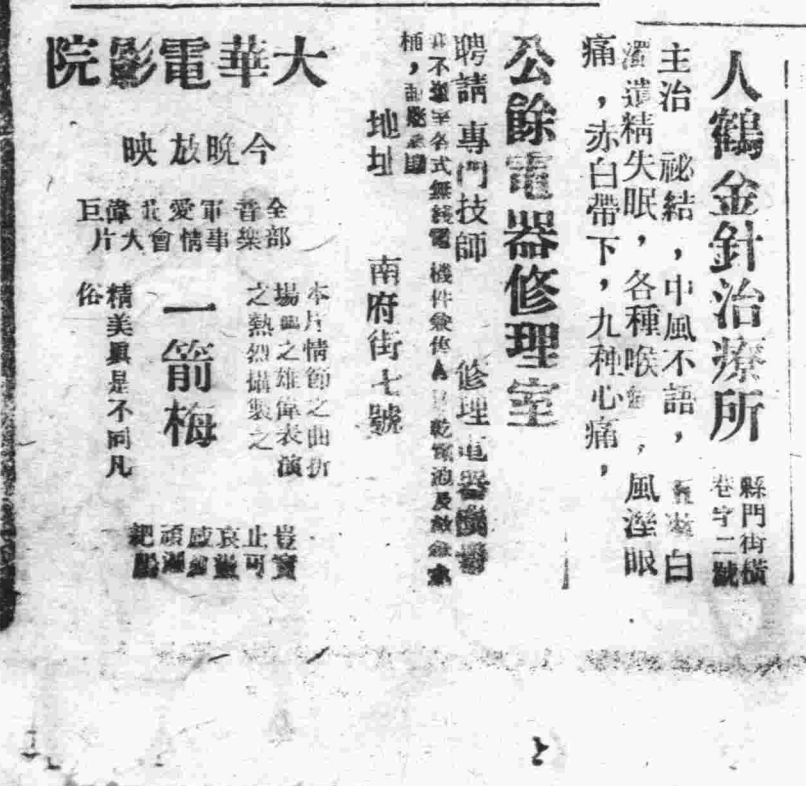 人鶴金針治療所
縣門街橫
巷字二號
主治 祕結，中風不語， 白
濁遺精失眠，各種喉 ，風溼眼
痛，赤白帶下，九种心痛，
公餘電器修理室
聘請 專門技師 修理電器機器
各式無綫電 機件兼售 乾電池及
桶，
地址 南府街七號
大華電影院
今晚放映
全部
音樂
軍事
愛情
會
偉大
巨片
本片情節之曲折
場面之雄偉表演
之熱烈攝製之
一箭梅
精美眞是不同凡
俗
豈
止可
哀
感
頑